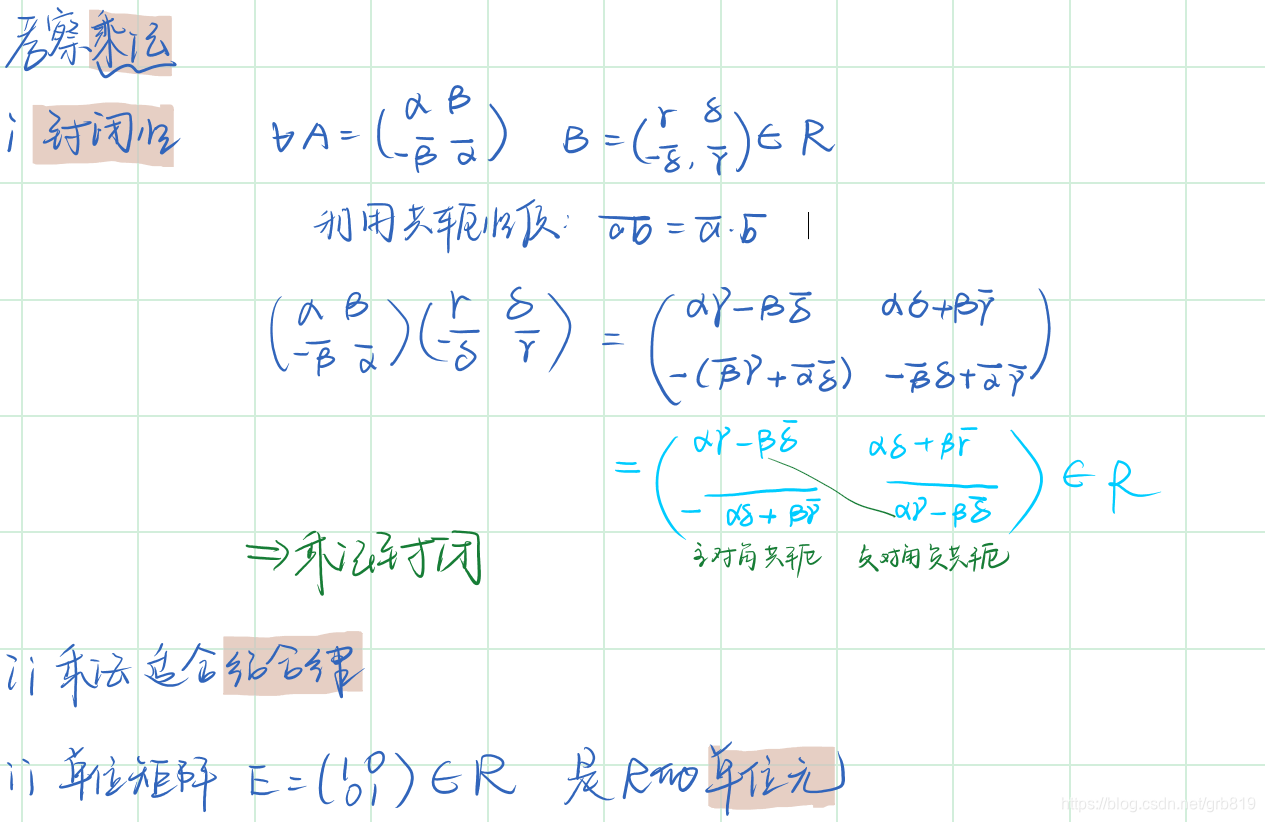 考察乘法
i 封闭性 ∀A=(α β -β̅ α̅) B=(γ δ -δ̅, γ̅)∈R
利用共轭性质: \overline{ab}=a̅·b̅
(α β -β̅ α̅)(γ δ -δ̅ γ̅) = (αγ-βδ̅ αδ+βγ̅ -(β̅γ+α̅δ̅) -β̅δ+α̅γ̅)
=(αγ-βδ̅ αδ+βγ̅ -\overline{αδ+βγ̅} \overline{αγ-βδ̅}) ∈R
主对角共轭 负对角负共轭
⇒乘法封闭
ii 乘法适合结合律
ii 单位矩阵 E=(1 0 0 1)∈R 是R的单位元
https://blog.csdn.net/grb819